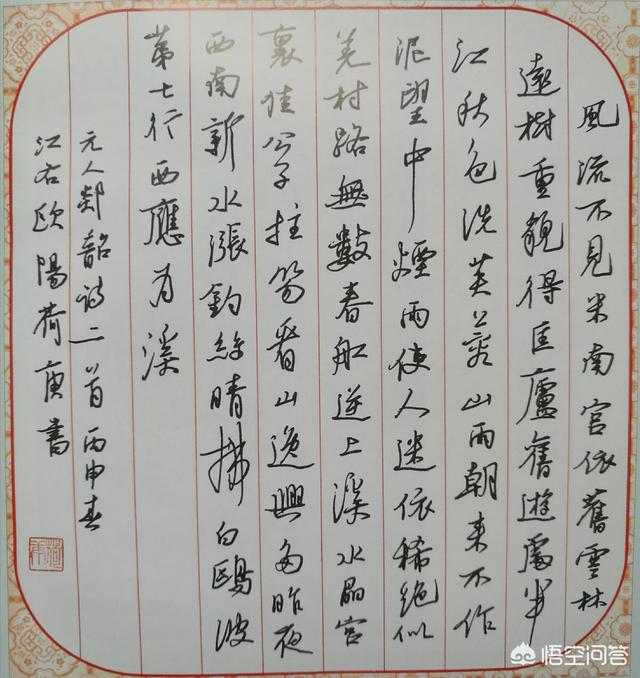 風流不見米南宫依舊雲林
遠樹重貌得匡廬舊遊處半
江秋色洗芙蓉山雨朝来不作
泥望中煙雨使人迷依稀絶似
羌村路無數春船逆上溪水晶宫
裏佳公子拄笏看山逸興多昨夜
西南新水漲釣絲晴拂白鷗波
第七行西應为溪
元人郯韶诗二首丙申春
江右歐陽荷庚書
悟空问答